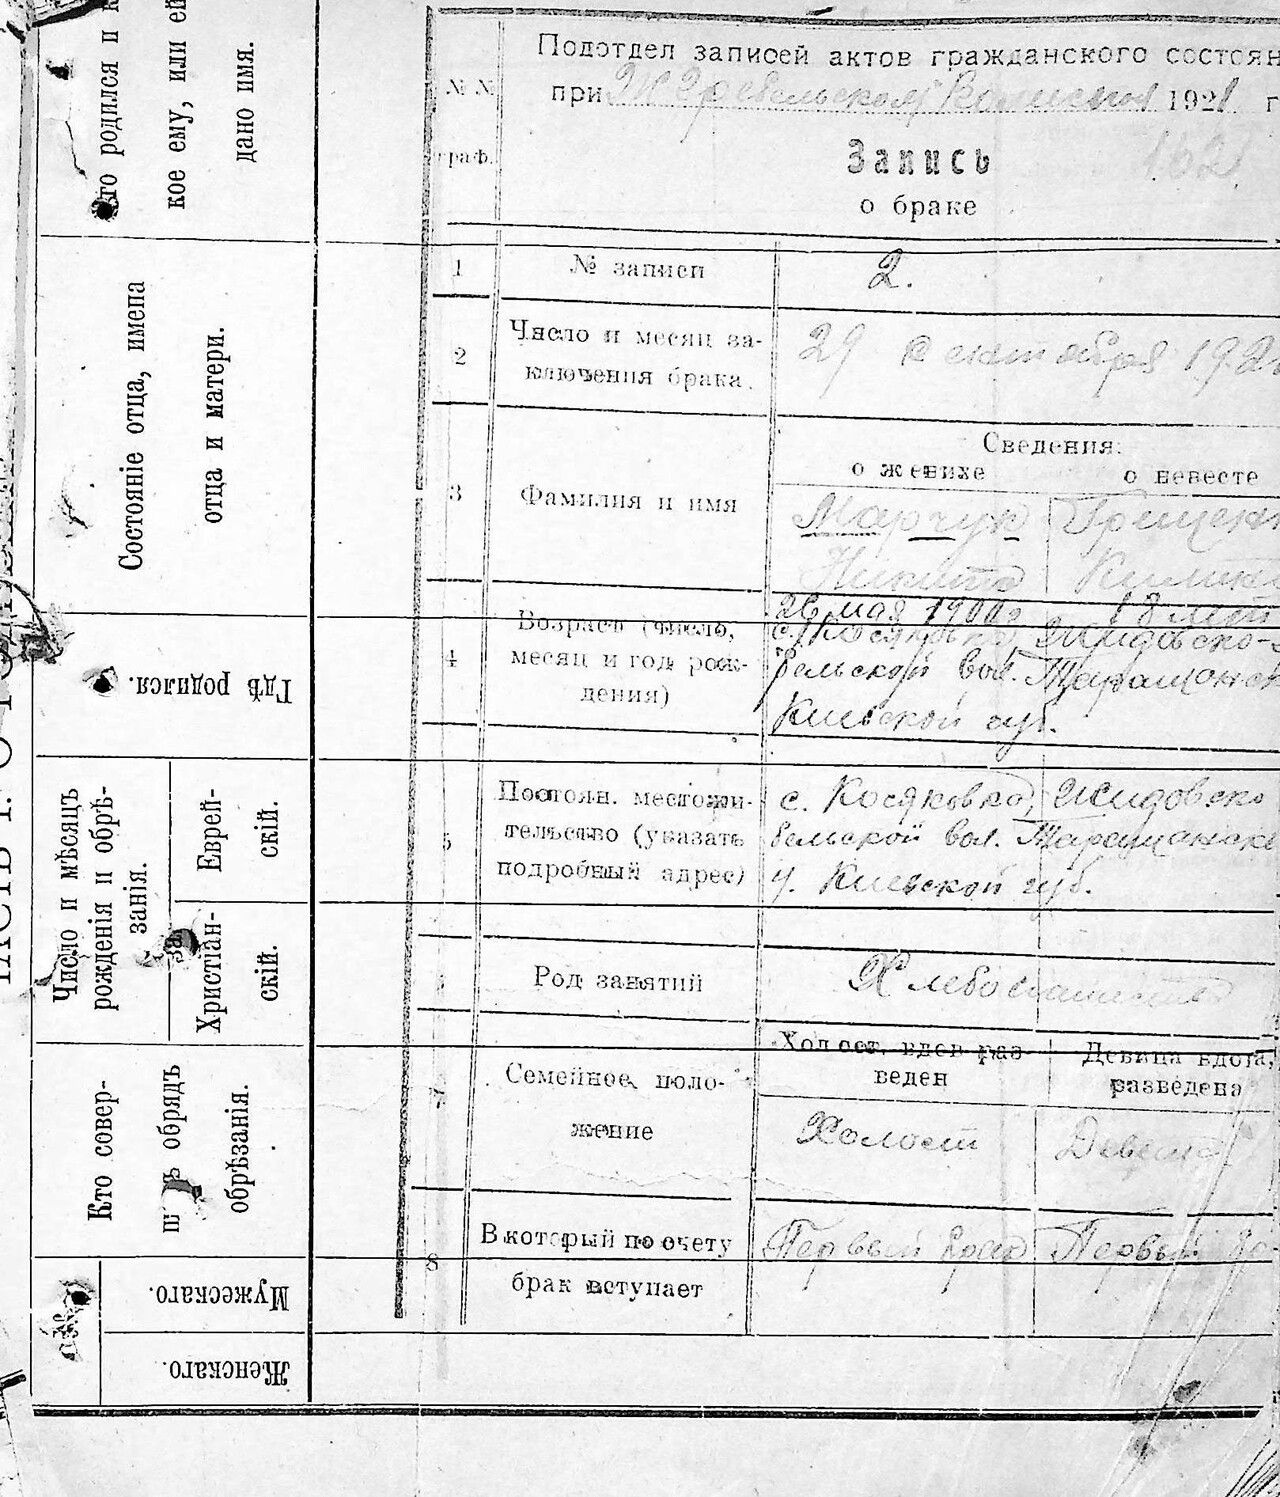 то родился и к
кое ему, или ей
дано имя.
Состоянiе отца, имена
отца и матери.
Гдѣ родился.
Число и мѣсяцъ
рожденiя и обрѣ-
занiя.
Еврей-
скiй.
Христiан-
скiй.
Кто совер-
обрядъ
обрѣзанiя.
Мужескаго.
Женскаго.
№ №
граф.
Подотдел записей актов гражданского состоян
при 1921 г
Запись
162
о браке
1 № записи 2.
2 Число и месяц за-
ключения брака.
29 сентября 192
Сведения:
о женихе о невесте
3 Фамилия и имя
Марчук Грищен
Никита
4 Возраст (число,
месяц и год рож-
дения)
26 мая 1900 г 18 лет
с. Косяковка, Жидовско-
гребельской вол. Таращанск
Киевской губ.
5 Постоян. местожи-
тельство (указать
подробный адрес)
с. Косяковка, Жидовско
бельской вол. Таращанск
у. Киевской губ.
Род занятий
Хлебопашество
7 Семейное поло-
жение
Холост. вдов раз-
веден
Девица вдова,
разведена
Холост Девица
8 В который по счету
брак вступает
Первый брак Первый